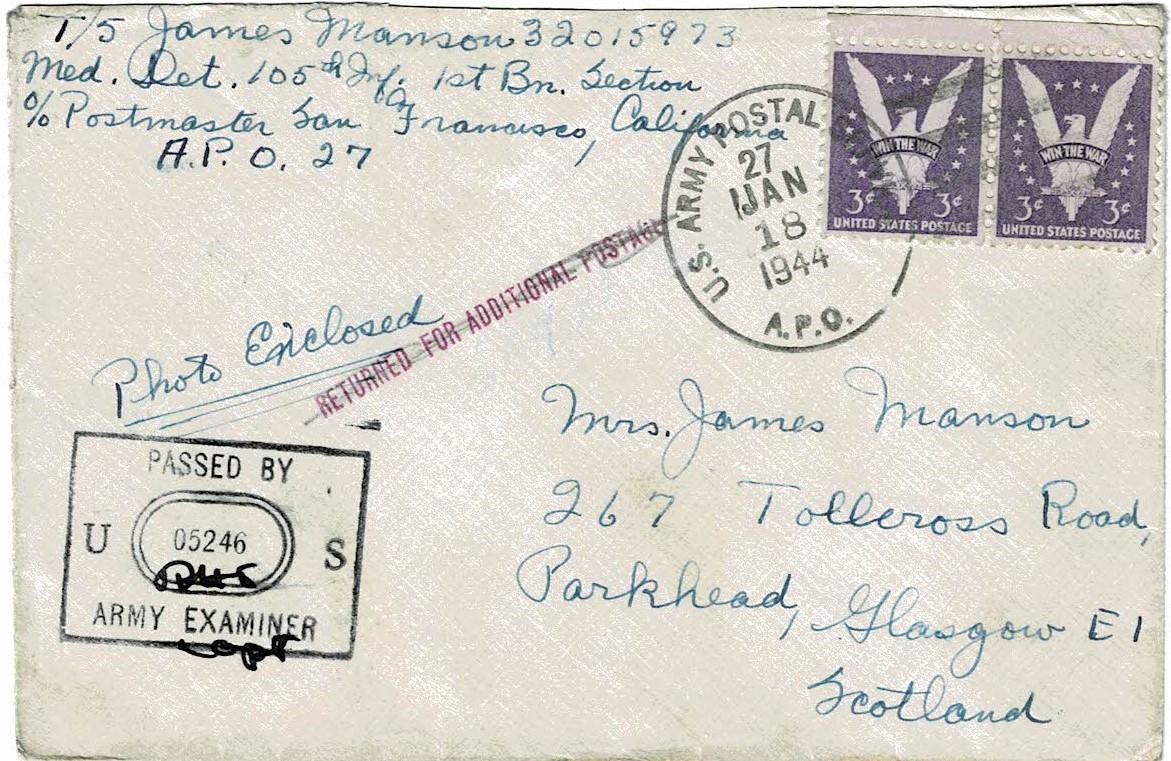 T/5 James Manson 32015973
Med. Det. 105th Inf. 1st Bn. Section
c/o Postmaster San Francisco, California
A.P.O. 27
U.S. ARMY POSTAL
27
JAN
18
1944
A.P.O.
WIN THE WAR
3¢ 3¢
UNITED STATES POSTAGE
WIN THE WAR
3¢ 3¢
UNITED STATES POSTAGE
RETURNED FOR ADDITIONAL POSTAGE
Photo Enclosed
Mrs. James Manson
267 Tollcross Road,
Parkhead, Glasgow E1
Scotland
PASSED BY
U 05246 S
ARMY EXAMINER
Capt